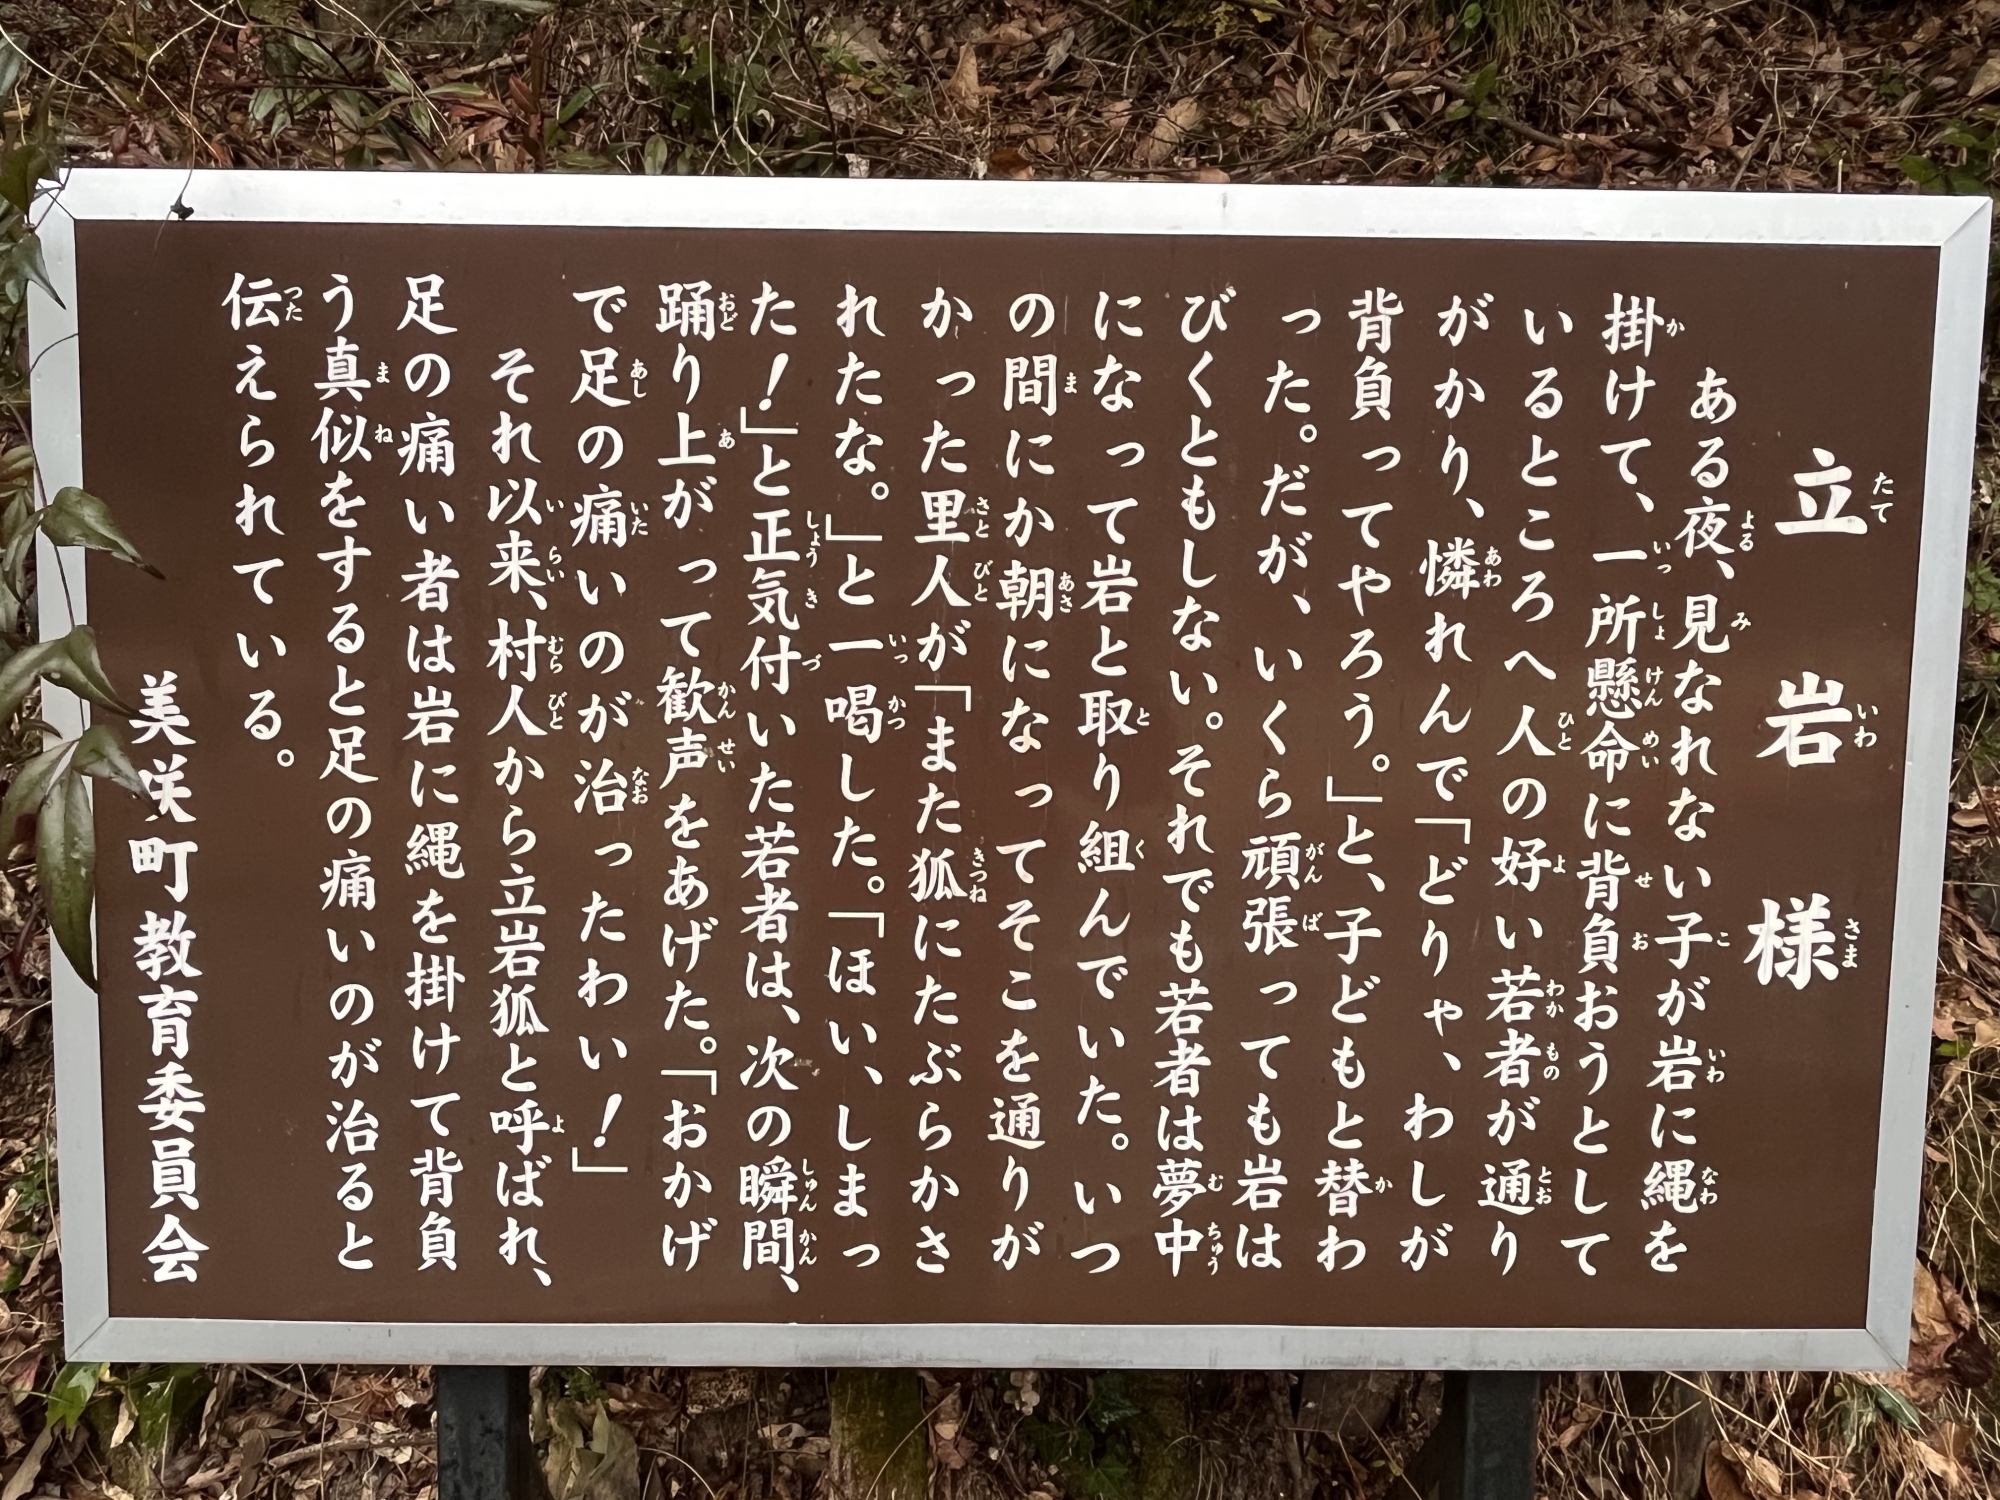 立岩様
ある夜、見なれない子が岩に縄を
掛けて、一所懸命に背負おうとして
いるところへ人の好い若者が通り
がかり、憐れんで「どりゃ、わしが
背負ってやろう。」と、子どもと替わ
った。だが、いくら頑張っても岩は
びくともしない。それでも若者は夢中
になって岩と取り組んでいた。いつ
の間にか朝になってそこを通りが
かった里人が「また狐にたぶらかさ
れたな。」と一喝した。「ほい、しまっ
た！」と正気付いた若者は、次の瞬間、
踊り上がって歓声をあげた。「おかげ
で足の痛いのが治ったわい！」
それ以来、村人から立岩狐と呼ばれ、
足の痛い者は岩に縄を掛けて背負
う真似をすると足の痛いのが治ると
伝えられている。
美咲町教育委員会